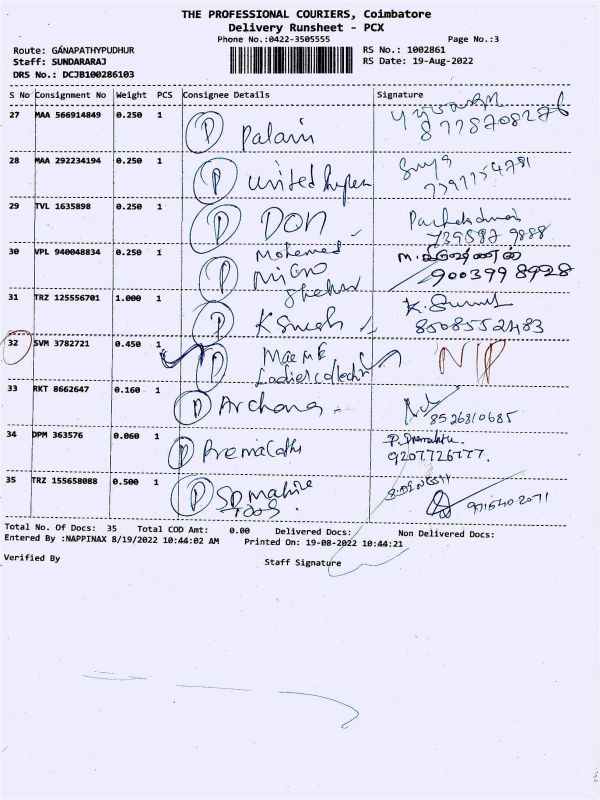 THE PROFESSIONAL COURIERS, Coimbatore
Delivery Runsheet - PCX
Phone No.:0422-3505555
Page No.:3
Route: GANAPATHYPUDHUR
RS No.: 1002861
Staff: SUNDARARAJ
RS Date: 19-Aug-2022
DRS No.: DCJB100286103
S No Consignment No Weight PCS Consignee Details Signature
27 MAA 566914849 0.250 1 P Palani
28 MAA 292234194 0.250 1 P United
29 TVL 1635898 0.250 1 P DON
7395879888
30 VPL 940048834 0.250 1 P Mohamed
Micro
9003998928
31 TRZ 125556701 1.000 1 P K Suresh
8508552483
32 SVM 3782721 0.450 1 P
Ladies collection
33 RKT 8662647 0.160 1 P Archana
8526810685
34 DPM 363576 0.060 1 P Premalatha P. Premalatha
9207726777.
35 TRZ 155658088 0.500 1 P
9715402071
Total No. Of Docs: 35 Total COD Amt: 0.00 Delivered Docs: Non Delivered Docs:
Entered By :NAPPINAX 8/19/2022 10:44:02 AM Printed On: 19-08-2022 10:44:21
Verified By
Staff Signature